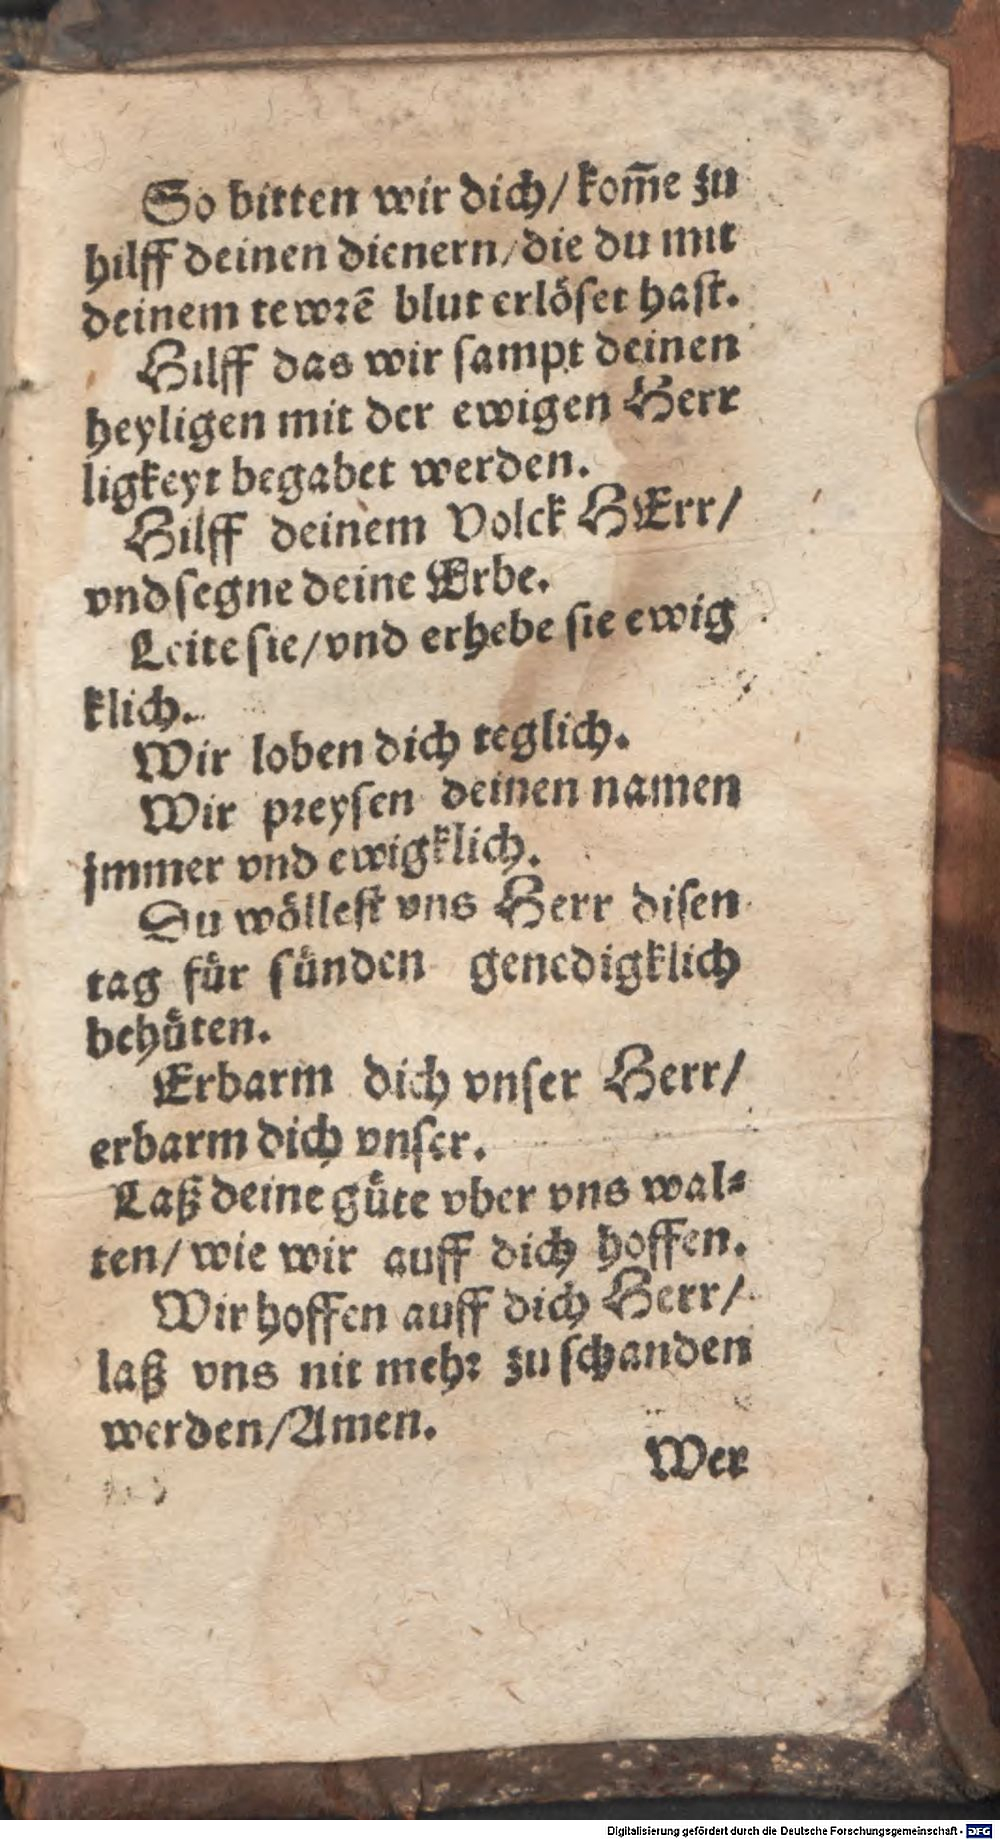 So bitten wir dich/ kom̄e zu
hilff deinen dienern/ die du mit
deinem tewrē blut erlöset hast.
Hilff das wir sampt deinen
heyligen mit der ewigen Herr
ligkeyt begabet werden.
Hilff deinem Volck HErr/
vnd segne deine Erbe.
Leite sie/ vnd erhebe sie ewig
klich.
Wir loben dich teglich.
Wir preysen deinen namen
jmmer vnd ewigklich.
Du wöllest vns Herr disen
tag fuͤr suͤnden genedigklich
behuͤten.
Erbarm dich vnser Herr/
erbarm dich vnser.
Laß deine guͤte vber vns wal⸗
ten/ wie wir auff dich hoffen.
Wir hoffen auff dich Herr/
laß vns nit mehr zu schanden
werden/ Amen.
Wer
Digitalisierung gefördert durch die Deutsche Forschungsgemeinschaft - DFG